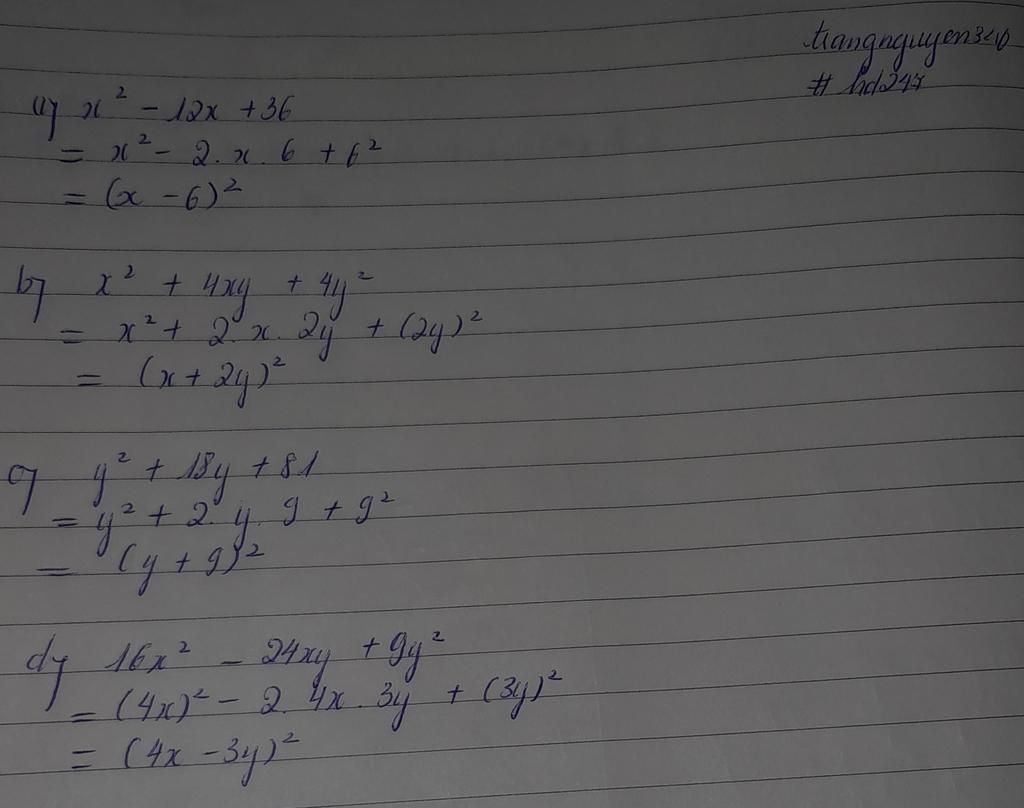 trangnguyen3410
# hd247
a) x² - 12x + 36
= x² - 2. x. 6 + 6²
= (x - 6)²
b) x² + 4xy + 4y²
= x² + 2. x. 2y + (2y)²
= (x + 2y)²
c) y² + 18y + 81
= y² + 2. y. 9 + 9²
= (y + 9)²
d) 16x² - 24xy + 9y²
= (4x)² - 2. 4x. 3y + (3y)²
= (4x - 3y)²